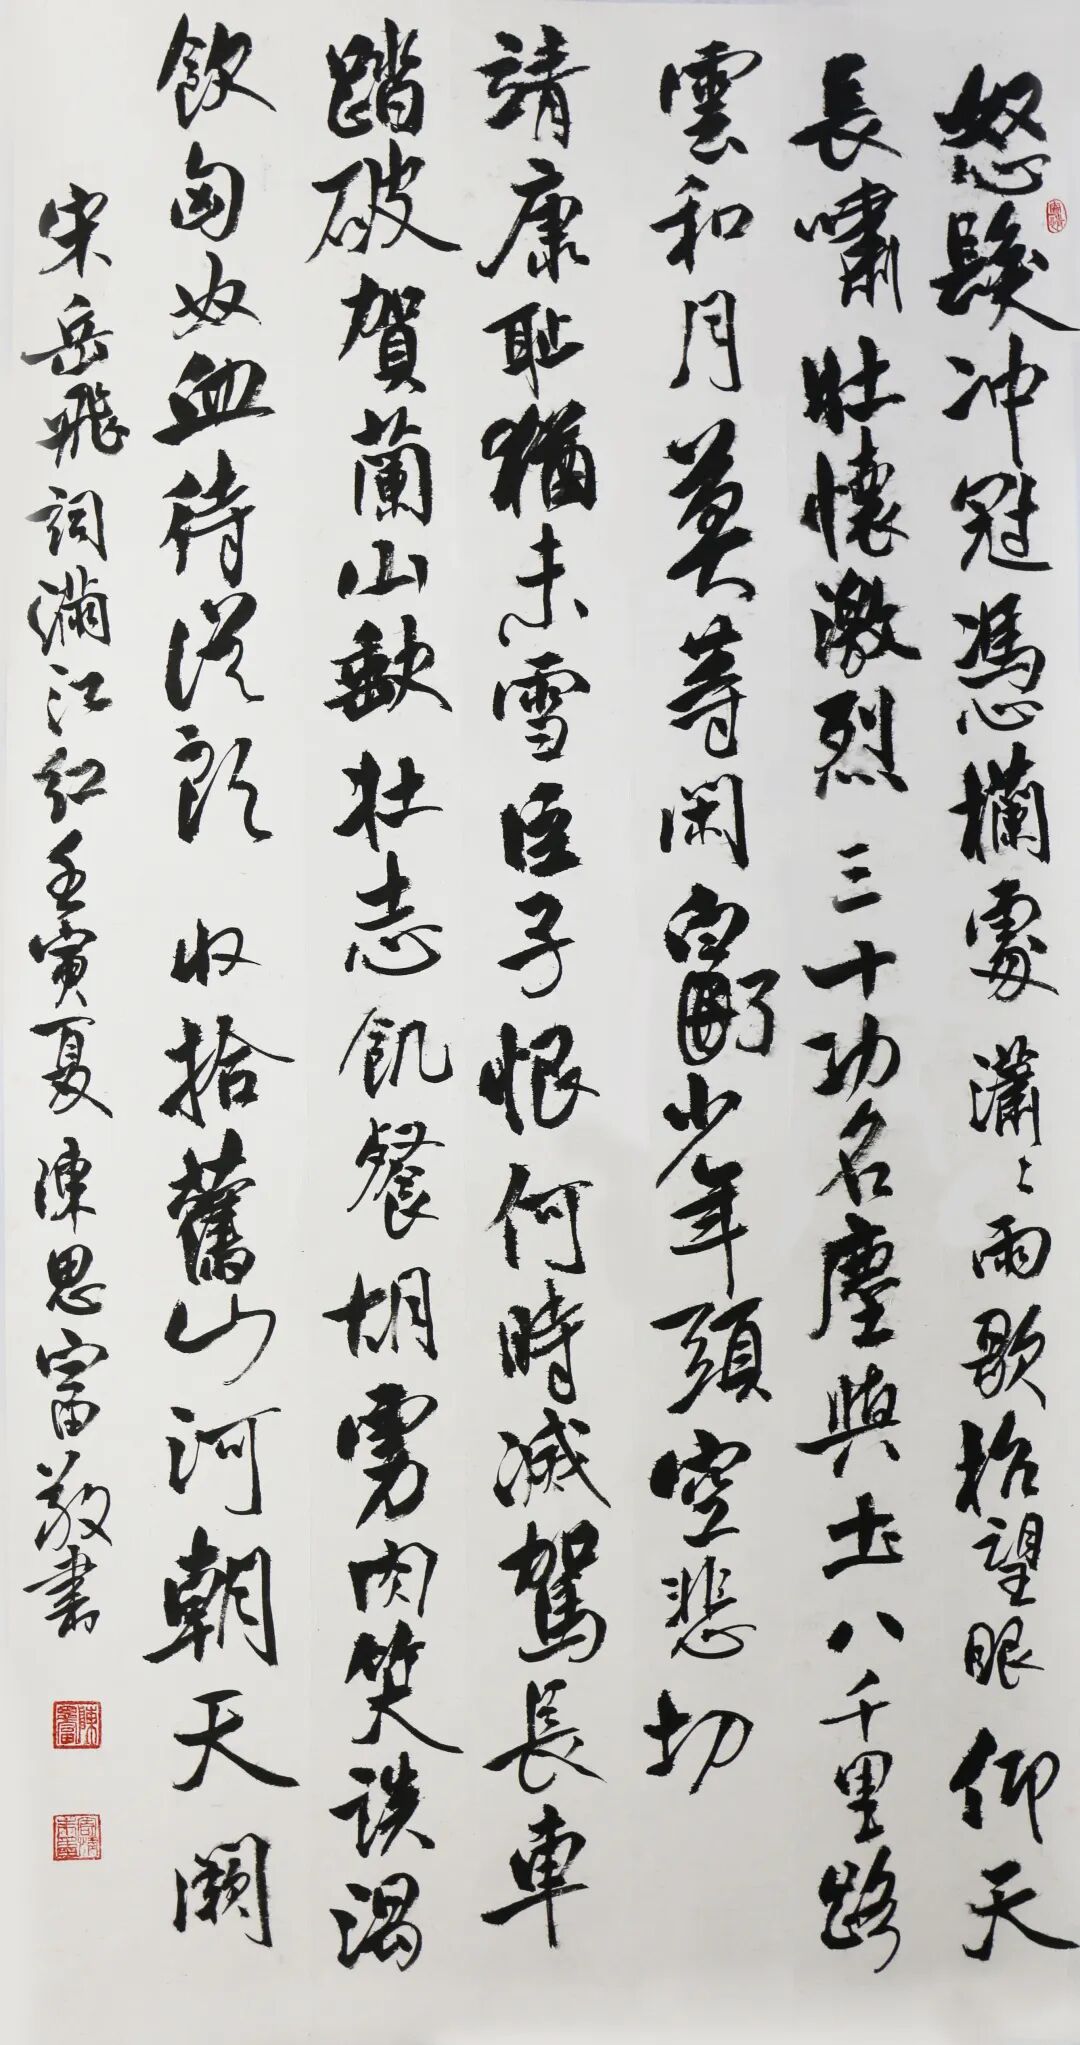 怒髮冲冠憑欄處瀟〻雨歇抬望眼仰天
長嘯壯懷激烈三十功名塵與土八千里路
雲和月莫等閑白了少年頭空悲切
靖康耻猶未雪臣子恨何時滅駕長車
踏破賀蘭山缺壯志飢餐胡虜肉笑談渴
飲匈奴血待從頭收拾舊山河朝天闕
宋岳飛詞滿江紅壬寅夏陳思富敬書
陳思富